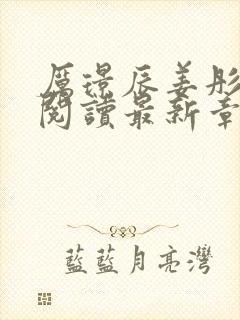 厲璟辰姜彤
閱讀最新章
藍藍月亮灣